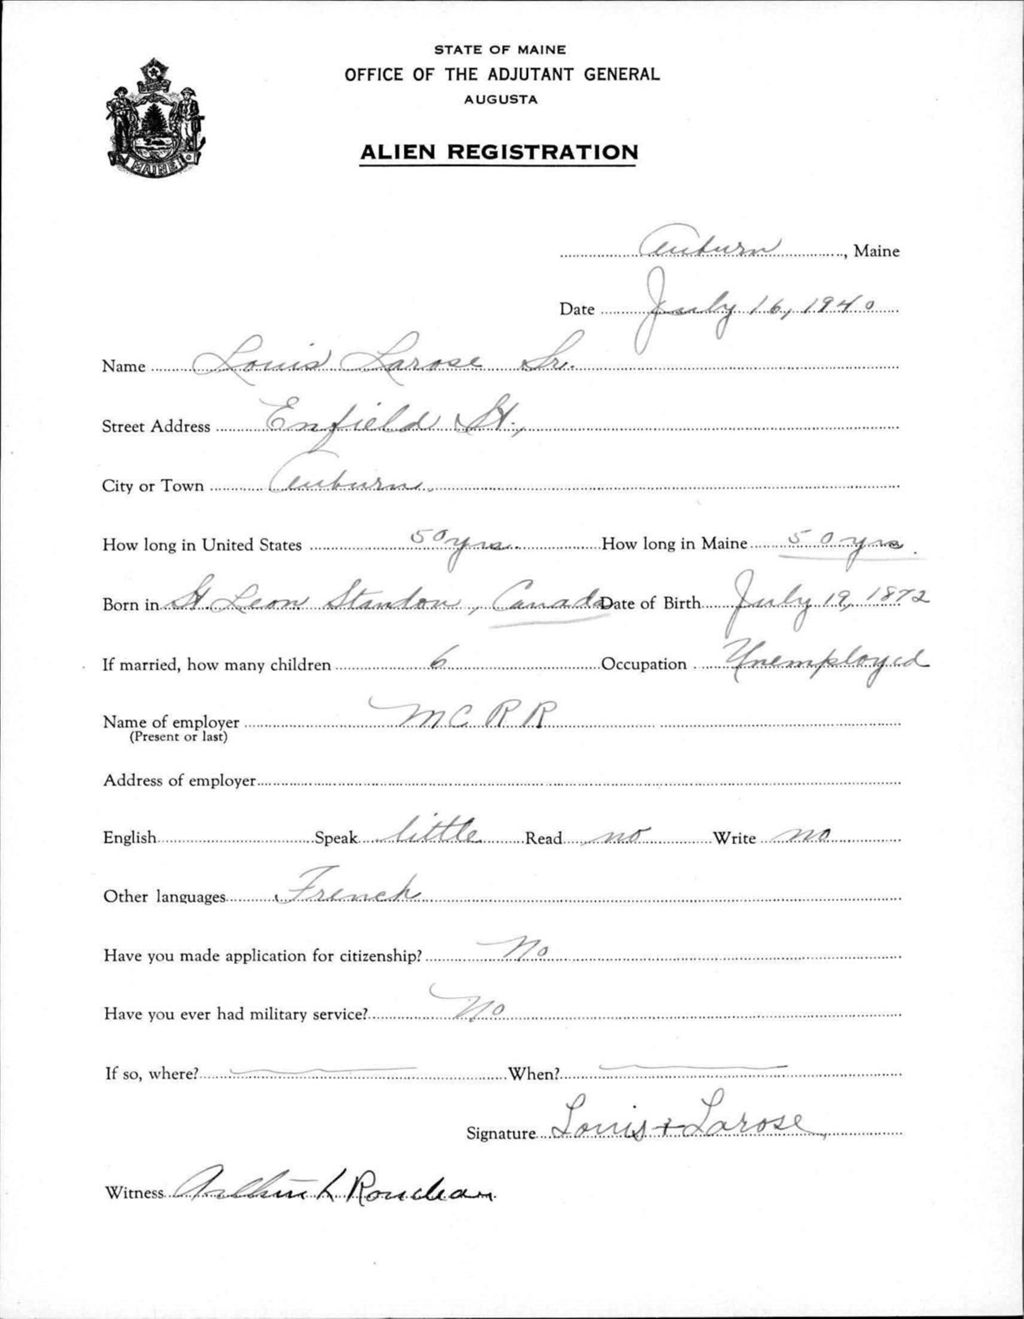 STATE OF MAINE
OFFICE OF THE ADJUTANT GENERAL
AUGUSTA
ALIEN REGISTRATION
MAINE
Auburn, Maine
Date July 16, 1940
Name Louis Larose Sr.
Street Address Enfield St.,
City or Town Auburn
How long in United States 50 yrs How long in Maine 50 yrs
Born in St. Leon Standon, Canada Date of Birth July 19, 1872
If married, how many children 6 Occupation Unemployed
Name of employer MCRR
(Present or last)
Address of employer
English Speak little Read no Write no
Other languages French
Have you made application for citizenship? No
Have you ever had military service? No
If so, where? When?
Signature Louis + Larose
Witness L Rondeau